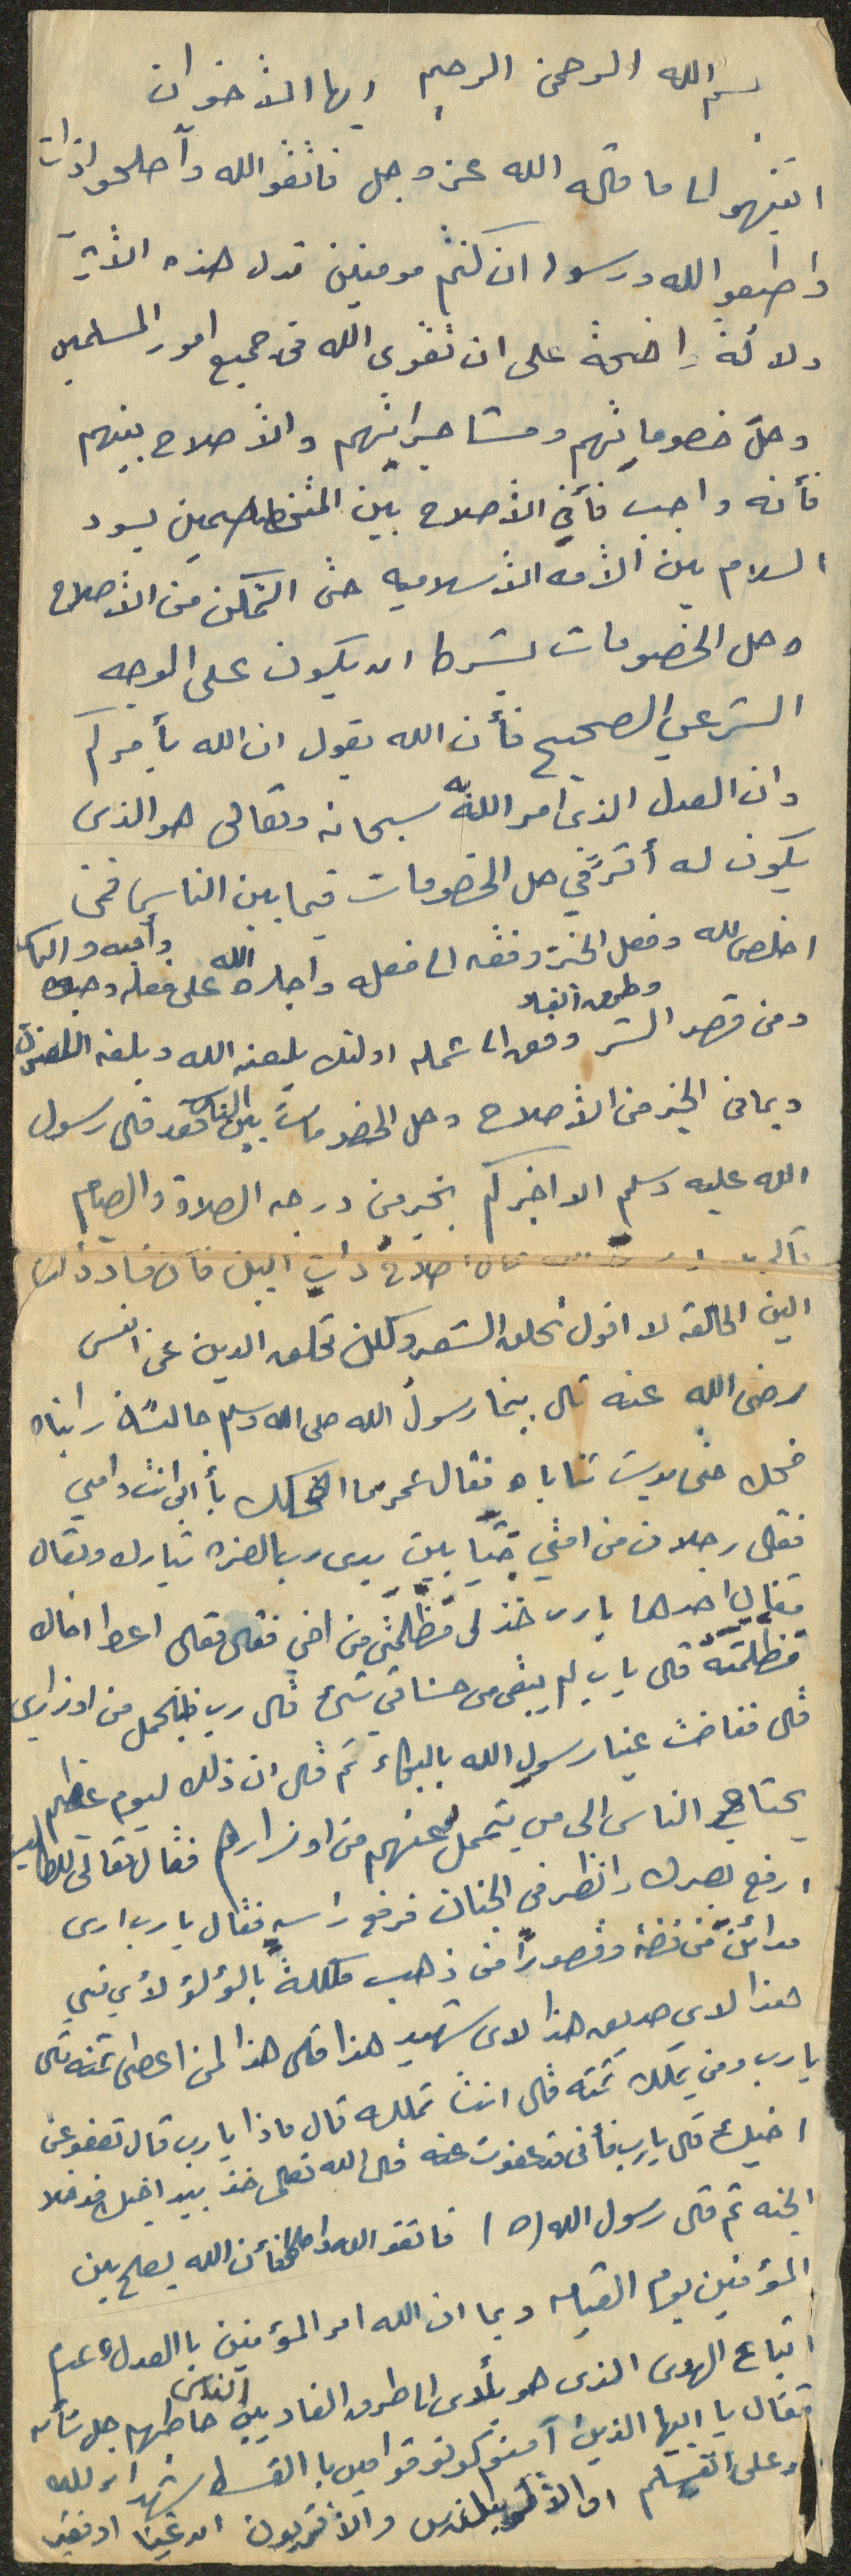 بسم الله الرحمن الرحيم ايها الأخوان
انتبهو الى ما قاله الله عز وجل فاتقو الله وأصلحو اذات
واطيعو الله ورسوله ان كنتم مومنين تدل هذه الأية
دلالةً واضحةً على ان تقوى الله في جميع امور المسلمين
وحلّ خصوماتهم ومشاجراتهم والأصلاح بينهم
فأنه واجب فأن الأصلاح بين المتخاصمين يسود
السلام بين الأمه الأسلاميه حتى التمكن من الأصلاح
وحل الخصومات بشرط ان يكون على الوجه
الشرعي الصحيح فأن الله يقول ان الله يأمركم
وان العدل الذي امر الله به سبحانه وتعالى هو الذي
يكون له أثرً في حل الخصومات فيما بين الناس فمن
اخلص لله وفعل الخير وفقه الى فعله واجاره الله على فعله وحبه
ومن قصد الشر وفق الى شمله اولئك يلعنه الله ويلعنه اللاعنون
وبما في الخير من الأصلاح وحل الخصومات بين الناس فقد قال رسول
الله عليه وسلم الا اخبركم بخير من درجه الصلاة والصيام
اصلاح ذات البين فأن فساد ذات
البين الحالقه لا اقول تحلق الشعر ولكن تحلق الدين عن انس
رضى الله عنه قال بينما رسول الله صلى الله وسلم جالسًا رايناه
ضحك حتى بدت ثناياه فقال عمر ما اضحكك بأبي انت وامي
فقال رجلان من امتي جثيا بين يدي رب العزه تبارك وتعالى
فقال احدهما يارب خذ لي مظلمتي من اخي فقال تعالى اعط اخاك
مظلمته قال يا رب لم يبقى من حسناتي شيء قال رب فليحمل من اوزاري
قال ففاضت عينا رسول الله بالبكاء ثم قال ان ذلك ليوم عظيم
يحتاج الناس الى من يتحمل عنهم من اوزارهم فقال تعالى للطالب
ارفع بصرك وانظر في الجنان فرفع راسه فقال يا رب ارى
مدائن من فضة وقصورًا من ذهب مكللةً بالؤلؤ لأي نبي
هذا لاي صديق هذا لاي شهيد هذا قال هذا لمن اعطى ثمنه قال
يارب ومن يملك ثمنه قال انت تملكه قال ماذا يا رب قال تعفو عن
اخيك قال يارب فأني قد عفوت عنه قال الله تعالى خذ بيد اخيك فدخلا
الجنه ثم قال رسول الله (ص) فاتقو الله واصلحو فأن الله يصلح بين
المؤمنين يوم القيامه وبما ان الله امر المؤمنين باالعدل وعدم
اتباع الهوى الذي هو يأدي الى طرق الفساد بين الناس خاطبهم جل شأنه
فقال يا ايها الذين آمنو كونو قوامين با القسط شهداء لله
وعلى انفسكم او الوالدين والأقربون ان غنيا او فقير